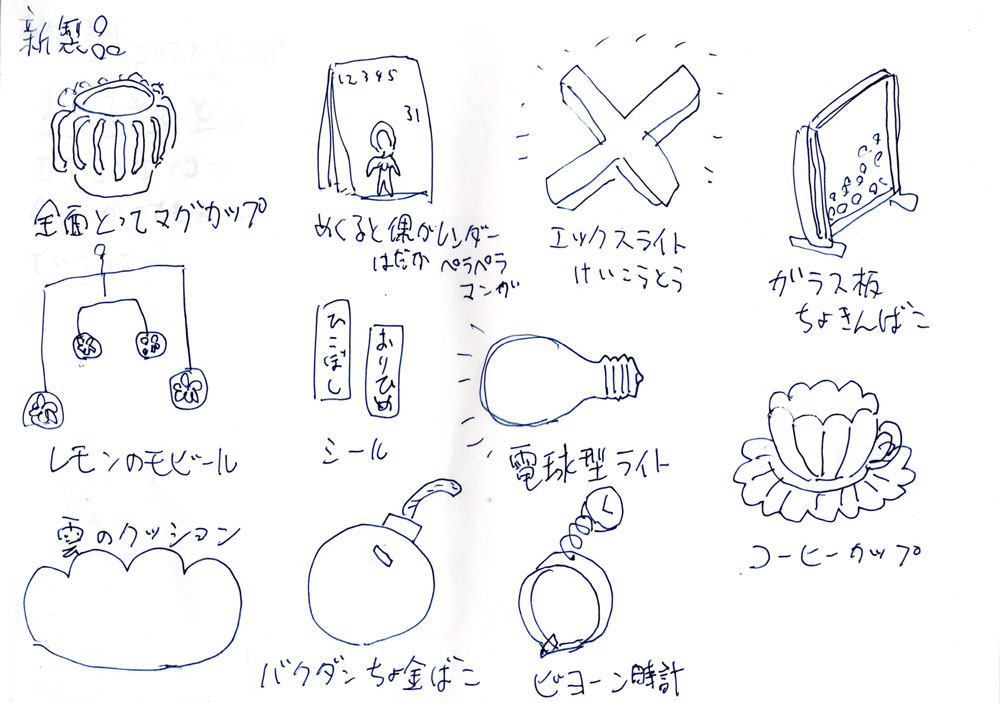 新製品
12345
31
全面とってマグカップ
めくると裸カレンダー
はだか ペラペラ
マンガ
エックスライト
けいこうとう
ガラス板
ちょきんばこ
レモンのモビール
ひこぼし
おりひめ
シール
電球型ライト
コーヒーカップ
雲のクッション
バクダンちょ金ばこ
ビヨーン時計